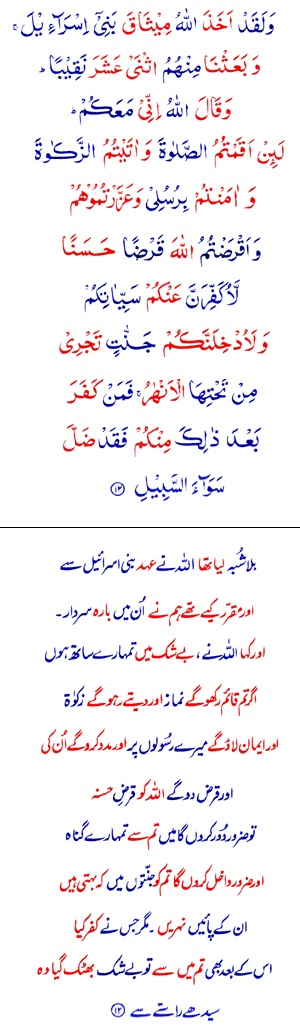 وَلَقَدْ اَخَذَ اللّٰهُ مِيْثَاقَ بَنِيْٓ اِسْرَآءِيْلَ ۚ
وَ بَعَثْنَا مِنْهُمُ اثْنَيْ عَشَرَ نَقِيْبًا ؕ
وَقَالَ اللّٰهُ اِنِّيْ مَعَكُمْ ؕ
لَىِٕنْ اَقَمْتُمُ الصَّلٰوةَ وَ اٰتَيْتُمُ الزَّكٰوةَ
وَ اٰمَنْتُمْ بِرُسُلِيْ وَعَزَّرْتُمُوْهُمْ
وَ اَقْرَضْتُمُ اللّٰهَ قَرْضًا حَسَنًا
لَّاُكَفِّرَنَّ عَنْكُمْ سَيِّاٰتِكُمْ
وَ لَاُدْخِلَنَّكُمْ جَنّٰتٍ تَجْرِيْ
مِنْ تَحْتِهَا الْاَنْهٰرُ ۚ فَمَنْ كَفَرَ
بَعْدَ ذٰلِكَ مِنْكُمْ فَقَدْ ضَلَّ
سَوَآءَ السَّبِيْلِ ۝۱۲
بلاشُبہ لیا تھا اللہ نے عہد بنی اسرائیل سے
اور مقرر کیے تھے ہم نے اُن میں بارہ سردار ۔
اور کہا اللہ نے ، بے شک میں تمہارے ساتھ ہوں
اگر تم قائم رکھو گے نماز اور دیتے رہو گے زکوٰۃ
اور ایمان لاؤ گے میرے رسُولوں پر اور مدد کرو گے اُن کی
اور قرض دو گے اللہ کو قرضِ حسنہ
تو ضرور دُور کردوں گا میں تم سے تمہارے گناہ
اور ضرور داخل کروں گا تم کو جنّتوں میں کہ بہتی ہیں
ان کے پائیں نہریں ۔ مگر جس نے کفر کیا
اس کے بعد بھی تم میں سے تو بے شک بھٹک گیا وہ
سیدھے راستے سے ۝۱۲